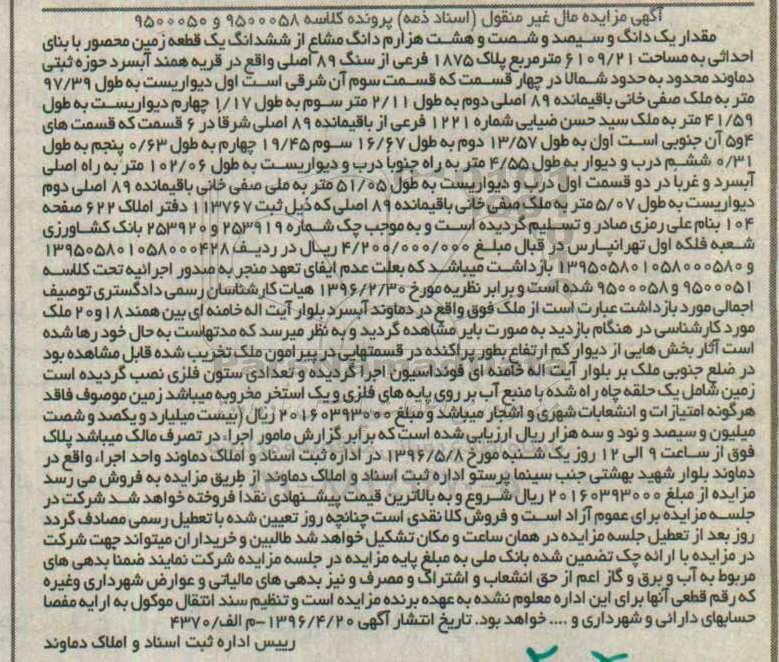 آگهی مزایده مال غیر منقول (اسناد ذمه) پرونده کلاسه ۹۵۰۰۰۵۸ و ۹۵۰۰۰۵۰
مقدار یک دانگ و سیصد و شصت و هشت هزارم دانگ مشاع از ششدانگ یک قطعه زمین محصور با بنای
احداثی به مساحت ۶۱۰۹/۲۱ مترمربع پلاک ۱۸۷۵ فرعی از سنگ ۸۹ اصلی واقع در قریه همند آبسرد حوزه ثبتی
دماوند محدود به حدود شمالا در چهار قسمت که قسمت سوم آن شرقی است اول دیواریست به طول ۹۷/۳۹
متر به ملک صفی خانی باقیمانده ۸۹ اصلی دوم به طول ۲/۱۱ متر سوم به طول ۱/۱۷ چهارم دیواریست به طول
۴۱/۵۹ متر به ملک سید حسن ضیایی شماره ۱۲۲۱ فرعی از باقیمانده ۸۹ اصلی شرقا در ۶ قسمت که قسمت های
۴و۵ آن جنوبی است اول به طول ۱۳/۵۷ دوم به طول ۱۶/۶۷ سوم ۱۹/۴۵ چهارم به طول ۰/۶۳ پنجم به طول
۰/۳۱ ششم درب و دیوار به طول ۴/۵۵ متر به راه جنوبا درب و دیواریست به طول ۱۰۲/۰۶ متر به راه اصلی
آبسرد و غربا در دو قسمت اول درب و دیواریست به طول ۵۱/۰۵ متر به ملی صفی خانی باقیمانده ۸۹ اصلی دوم
دیواریست به طول ۵/۰۷ متر به ملک صفی خانی باقیمانده ۸۹ اصلی که ذیل ثبت ۱۱۳۷۶۷ دفتر املاک ۶۲۲ صفحه
۱۰۴ بنام علی رمزی صادر و تسلیم گردیده است و به موجب چک شماره ۲۵۳۹۱۹ و ۲۵۳۹۲۰ بانک کشاورزی
شعبه فلکه اول تهرانپارس در قبال مبلغ ۴/۲۰۰/۰۰۰/۰۰۰ ریال در ردیف ۱۳۹۵۰۵۸۰۱۰۵۸۰۰۰۴۲۸
و ۱۳۹۵۰۵۸۰۱۰۵۸۰۰۰۵۸۰ بازداشت میباشد که بعلت عدم ایفای تعهد منجر به صدور اجرائیه تحت کلاسه
۹۵۰۰۰۵۱ و ۹۵۰۰۰۵۸ شده است و برابر نظریه مورخ ۱۳۹۶/۲/۳۰ هیات کارشناسان رسمی دادگستری توصیف
اجمالی مورد بازداشت عبارت است از ملک فوق واقع در دماوند آبسرد بلوار آیت اله خامنه ای بین همند ۱۸ و ۲۰ ملک
مورد کارشناسی در هنگام بازدید به صورت بایر مشاهده گردید و به نظر میرسد که مدتهاست به حال خود رها شده
است آثار بخش هایی از دیوار کم ارتفاع بطور پراکنده در قسمتهایی در پیرامون ملک تخریب شده قابل مشاهده بود
در ضلع جنوبی ملک بر بلوار آیت اله خامنه ای فونداسیون اجرا گردیده و تعدادی ستون فلزی نصب گردیده است
زمین شامل یک حلقه چاه راه شده با منبع آب بر روی پایه های فلزی و یک استخر مخروبه میباشد زمین موصوف فاقد
هرگونه امتیازات و انشعابات شهری و اشجار میباشد و مبلغ ۲۰۱۶۰۳۹۳۰۰۰ ریال (بیست میلیارد و یکصد و شصت
میلیون و سیصد و نود و سه هزار ریال ارزیابی شده است که برابر گزارش مامور اجرا، در تصرف مالک میباشد پلاک
فوق از ساعت ۹ الی ۱۲ روز یک شنبه مورخ ۱۳۹۶/۵/۸ در اداره ثبت اسناد و املاک دماوند واحد اجرا، واقع در
دماوند بلوار شهید بهشتی جنب سینما پرستو اداره ثبت اسناد و املاک دماوند از طریق مزایده به فروش می رسد
مزایده از مبلغ ۲۰۱۶۰۳۹۳۰۰۰ ریال شروع و به بالاترین قیمت پیشنهادی نقدا فروخته خواهد شد شرکت در
جلسه مزایده برای عموم آزاد است و فروش کلا نقدی است چنانچه روز تعیین شده با تعطیل رسمی مصادف گردد
روز بعد از تعطیل جلسه مزایده در همان ساعت و مکان تشکیل خواهد شد طالبین و خریداران میتواند جهت شرکت
در مزایده با ارائه چک تضمین شده بانک ملی به مبلغ پایه مزایده در جلسه مزایده شرکت نمایند ضمنا بدهی های
مربوط به آب و برق و گاز اعم از حق انشعاب و اشتراک و مصرف و نیز بدهی های مالیاتی و عوارض شهرداری وغیره
که رقم قطعی آنها برای این اداره معلوم نشده به عهده برنده مزایده است و تنظیم سند انتقال موکول به ارایه مفصا
حسابهای دارائی و شهرداری و .... خواهد بود. تاریخ انتشار آگهی ۱۳۹۶/۴/۲۰-م الف/۴۳۷۰
رییس اداره ثبت اسناد و املاک دماوند